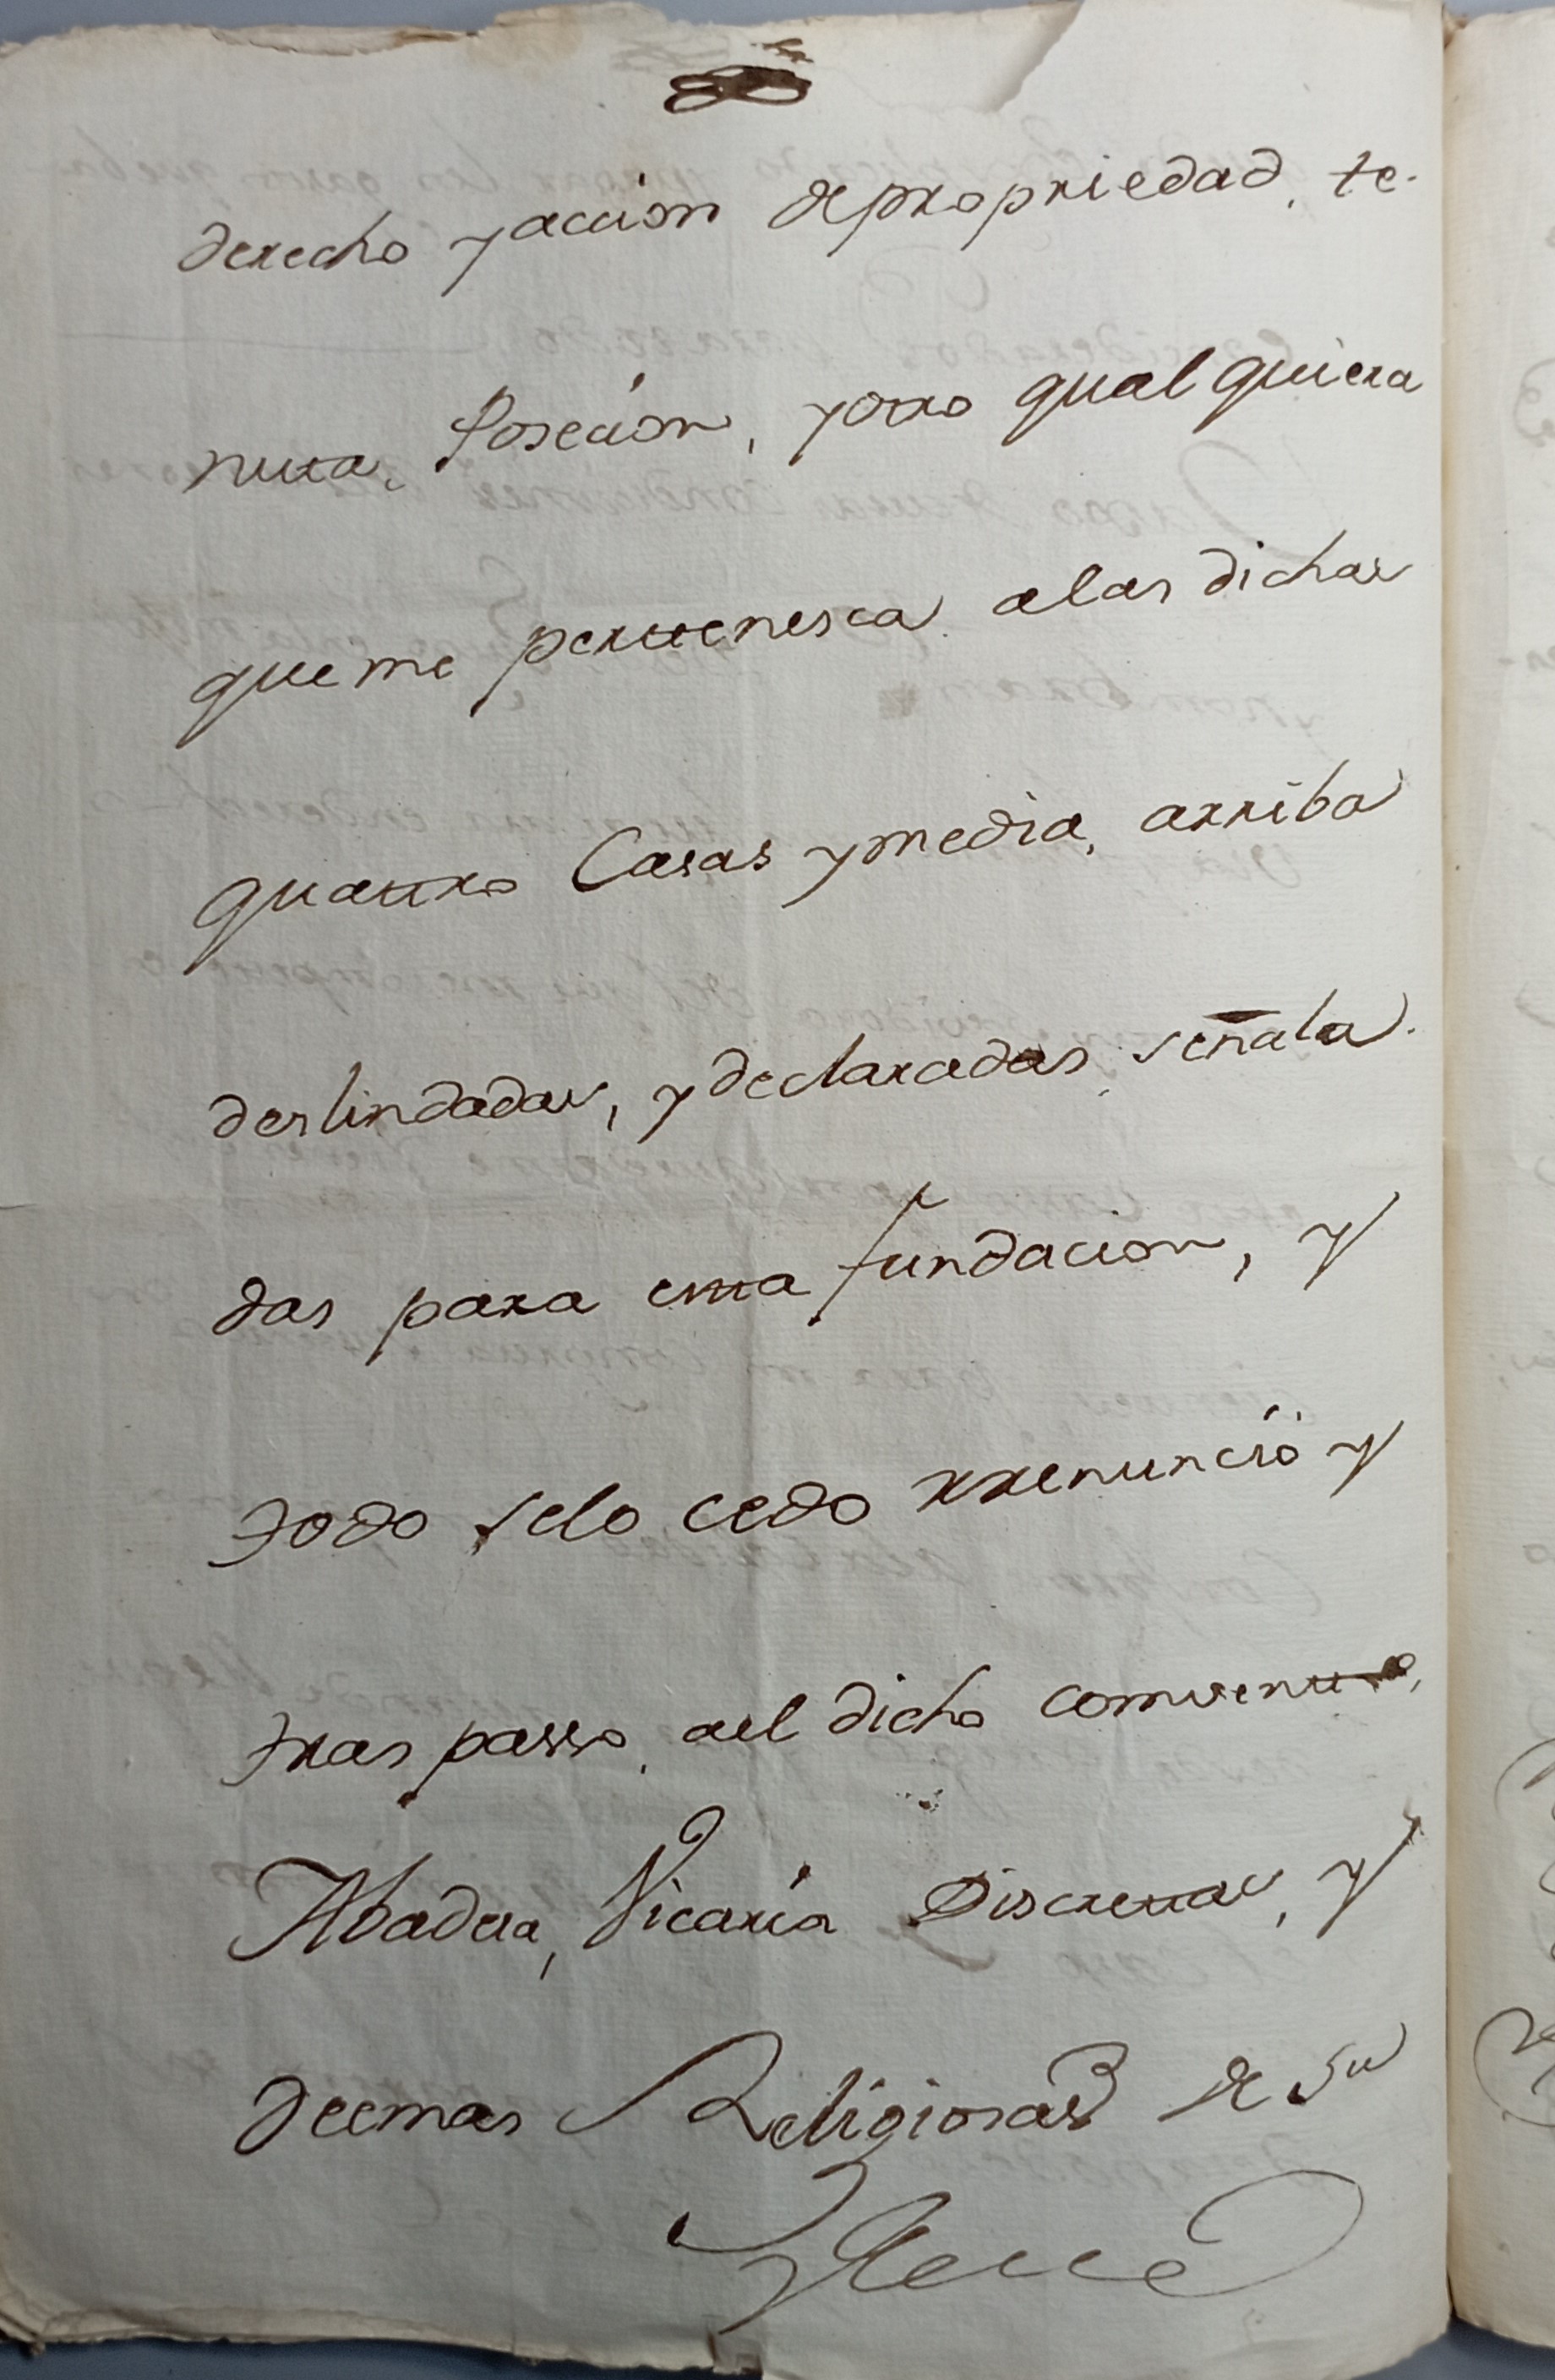 derecho y accion de propriedad, te-
nuta, Posecion, y otro qual quiera
que me pertenesca, a las dichas
quatro Casas y media, arriba
deslindadas, y declaradas, señala-
das para esta fundacion, y
todo se lo cedo rrenunció y
traspasso, ael dicho comvento,
Abadesa, Vicaria Discretas, y
deemas Religiosas de su